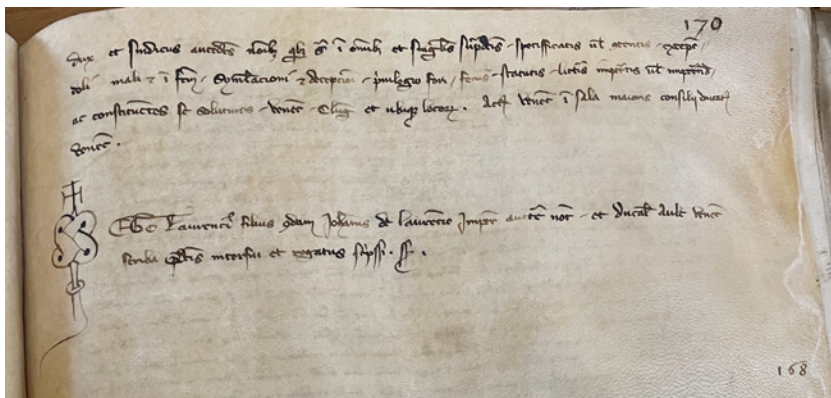 170
dux et sindicus antedc̄s noīb; qb; s̄ ī om̄ib; et singl̄is sup̄dc̄is specifficatis ul̄ otentis excepc̄
doli mali ⁊ ī fcm̄ symłacioni ⁊ decepcioi p̄uilegio fori feriis statutis lr̄is impetr̄is ul̄ impetrnd̄
ac constituentes se soluturos Venec̄ Cluḡ et ubiq; locor̄. Act̄ Venec̄ ī sala maioris consilij ducat̄
Venec̄.
Ego Laurenci9 filius qdam Joh̄anis de Laurencio Imper̄ auctē not̄ et ducal̄ aule Venec̄
scriba p̄dc̄is interfui et rogatus sc̄pssi. SS.
168